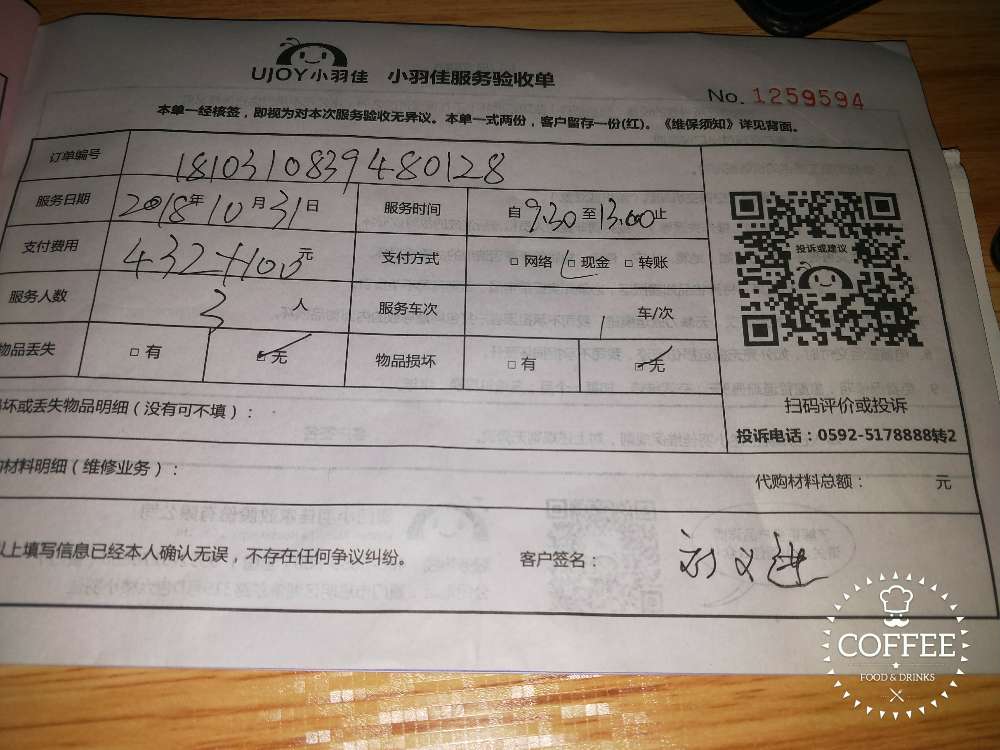 UJOY小羽佳 小羽佳服务验收单
No. 1259594
本单一经核签，即视为对本次服务验收无异议。本单一式两份，客户留存一份(红)。《维保须知》详见背面。
订单编号 1810310839480128
服务日期 2018年10月31日 服务时间 自9.30至13.00止
支付费用 432+100元 支付方式 □网络 □现金 □转账
服务人数 3人 服务车次 1车/次
物品丢失 □有 □无 物品损坏 □有 □无
投诉或建议
扫码评价或投诉
投诉电话：0592-5178888转2
坏或丢失物品明细（没有可不填）：
材料明细（维修业务）：
代购材料总额： 元
以上填写信息已经本人确认无误，不存在任何争议纠纷。 客户签名：
COFFEE
FOOD & DRINKS